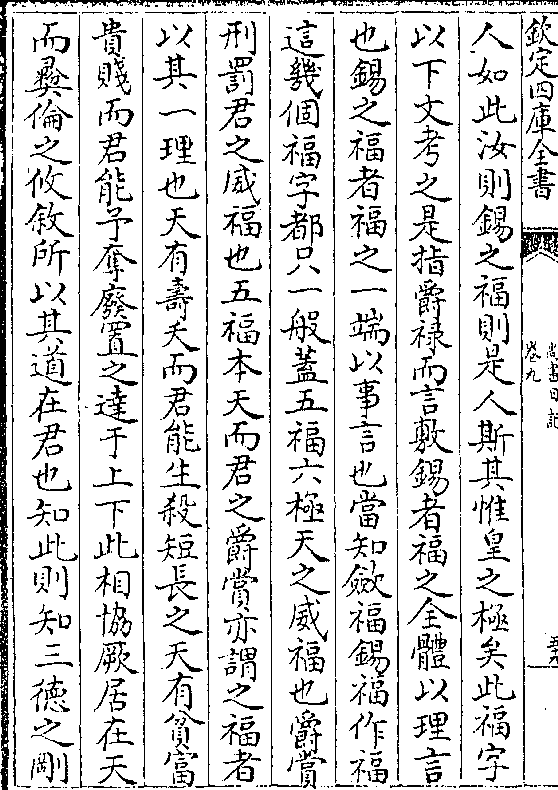 欽定四庫全書
尚書日記
卷九
人如此汝則錫之福則是人斯其惟皇之極矣此福字
以下文考之是指爵禄而言敷錫者福之全體以理言
也錫之福者福之一端以事言也當知斂福錫福作福
這幾個福字都只一般葢五福六極天之威福也爵賞
刑罰君之威福也五福本天而君之爵賞亦謂之福者
以其一理也天有壽夭而君能生殺短長之天有貧富
貴賤而君能予奪廢置之達于上下此相協厥居在天
而彛倫之攸敘所以其道在君也知此則知三德之剛